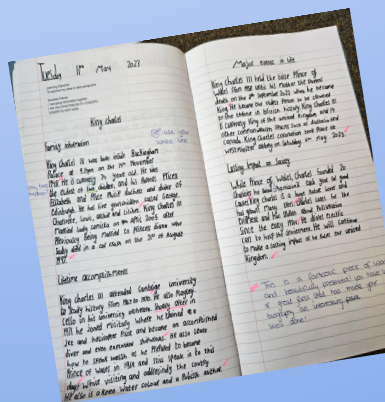 Tuesday 11th May 2023
King Charles
Family information
King Charles III was born inside Buckingham
Palace at 9.14pm on the 14th November
1948. He is currently 74 years old. He was
the eldest of four children, and his parents Princess
Elizabeth and Prince Philip duchess and duke of
Edinburgh. He has five grandchildren called George,
Charlotte, Louis, Archie and Lilibet. King Charles III
married lady camilla on the April 2005 after
previously being married to Princess diana who
sadly died in a car crash on the 31st of August
1997.
Lifetime accomplishments
King Charles III attended Cambridge university
to study history from 1967 to 1970. He also played
cello in his university orchestra. Shortly after in
1971 he joined Military where he trained as a
Jet and helicopter Pilot and became an accomplished
diver and even
how to speak welsh as he Prepared to become
Prince of Wales in 1969 and still speak it to this
day whilst visiting and addressing the country
He also is a keen water colour and a Publish author.
Major events in life
King Charles III held the title Prince of
Wales until his mother the Queens
death on the 8th September 2022 when he became
king. He became the oldest Person to be crowned
to the throne in British history. King Charles III
is currently king of the united kingdom and 14
other commonwealths, places such as Australia and
Canada. King Charles coronation took Place at
westminster abbey on Saturday 6th May 2023.
Lasting Impact on Society
While Prince of Wales, Charles founded 20
Charities
King Charles III is a
cares for the
and has spoken about Pollution
Since the early 1970s. He drives electric
cars to help the environment. He will continue
to make a lasting impact as he leads the united
Kingdom.
This is a fantastic piece of work
and beautifully presented. You have
well done!